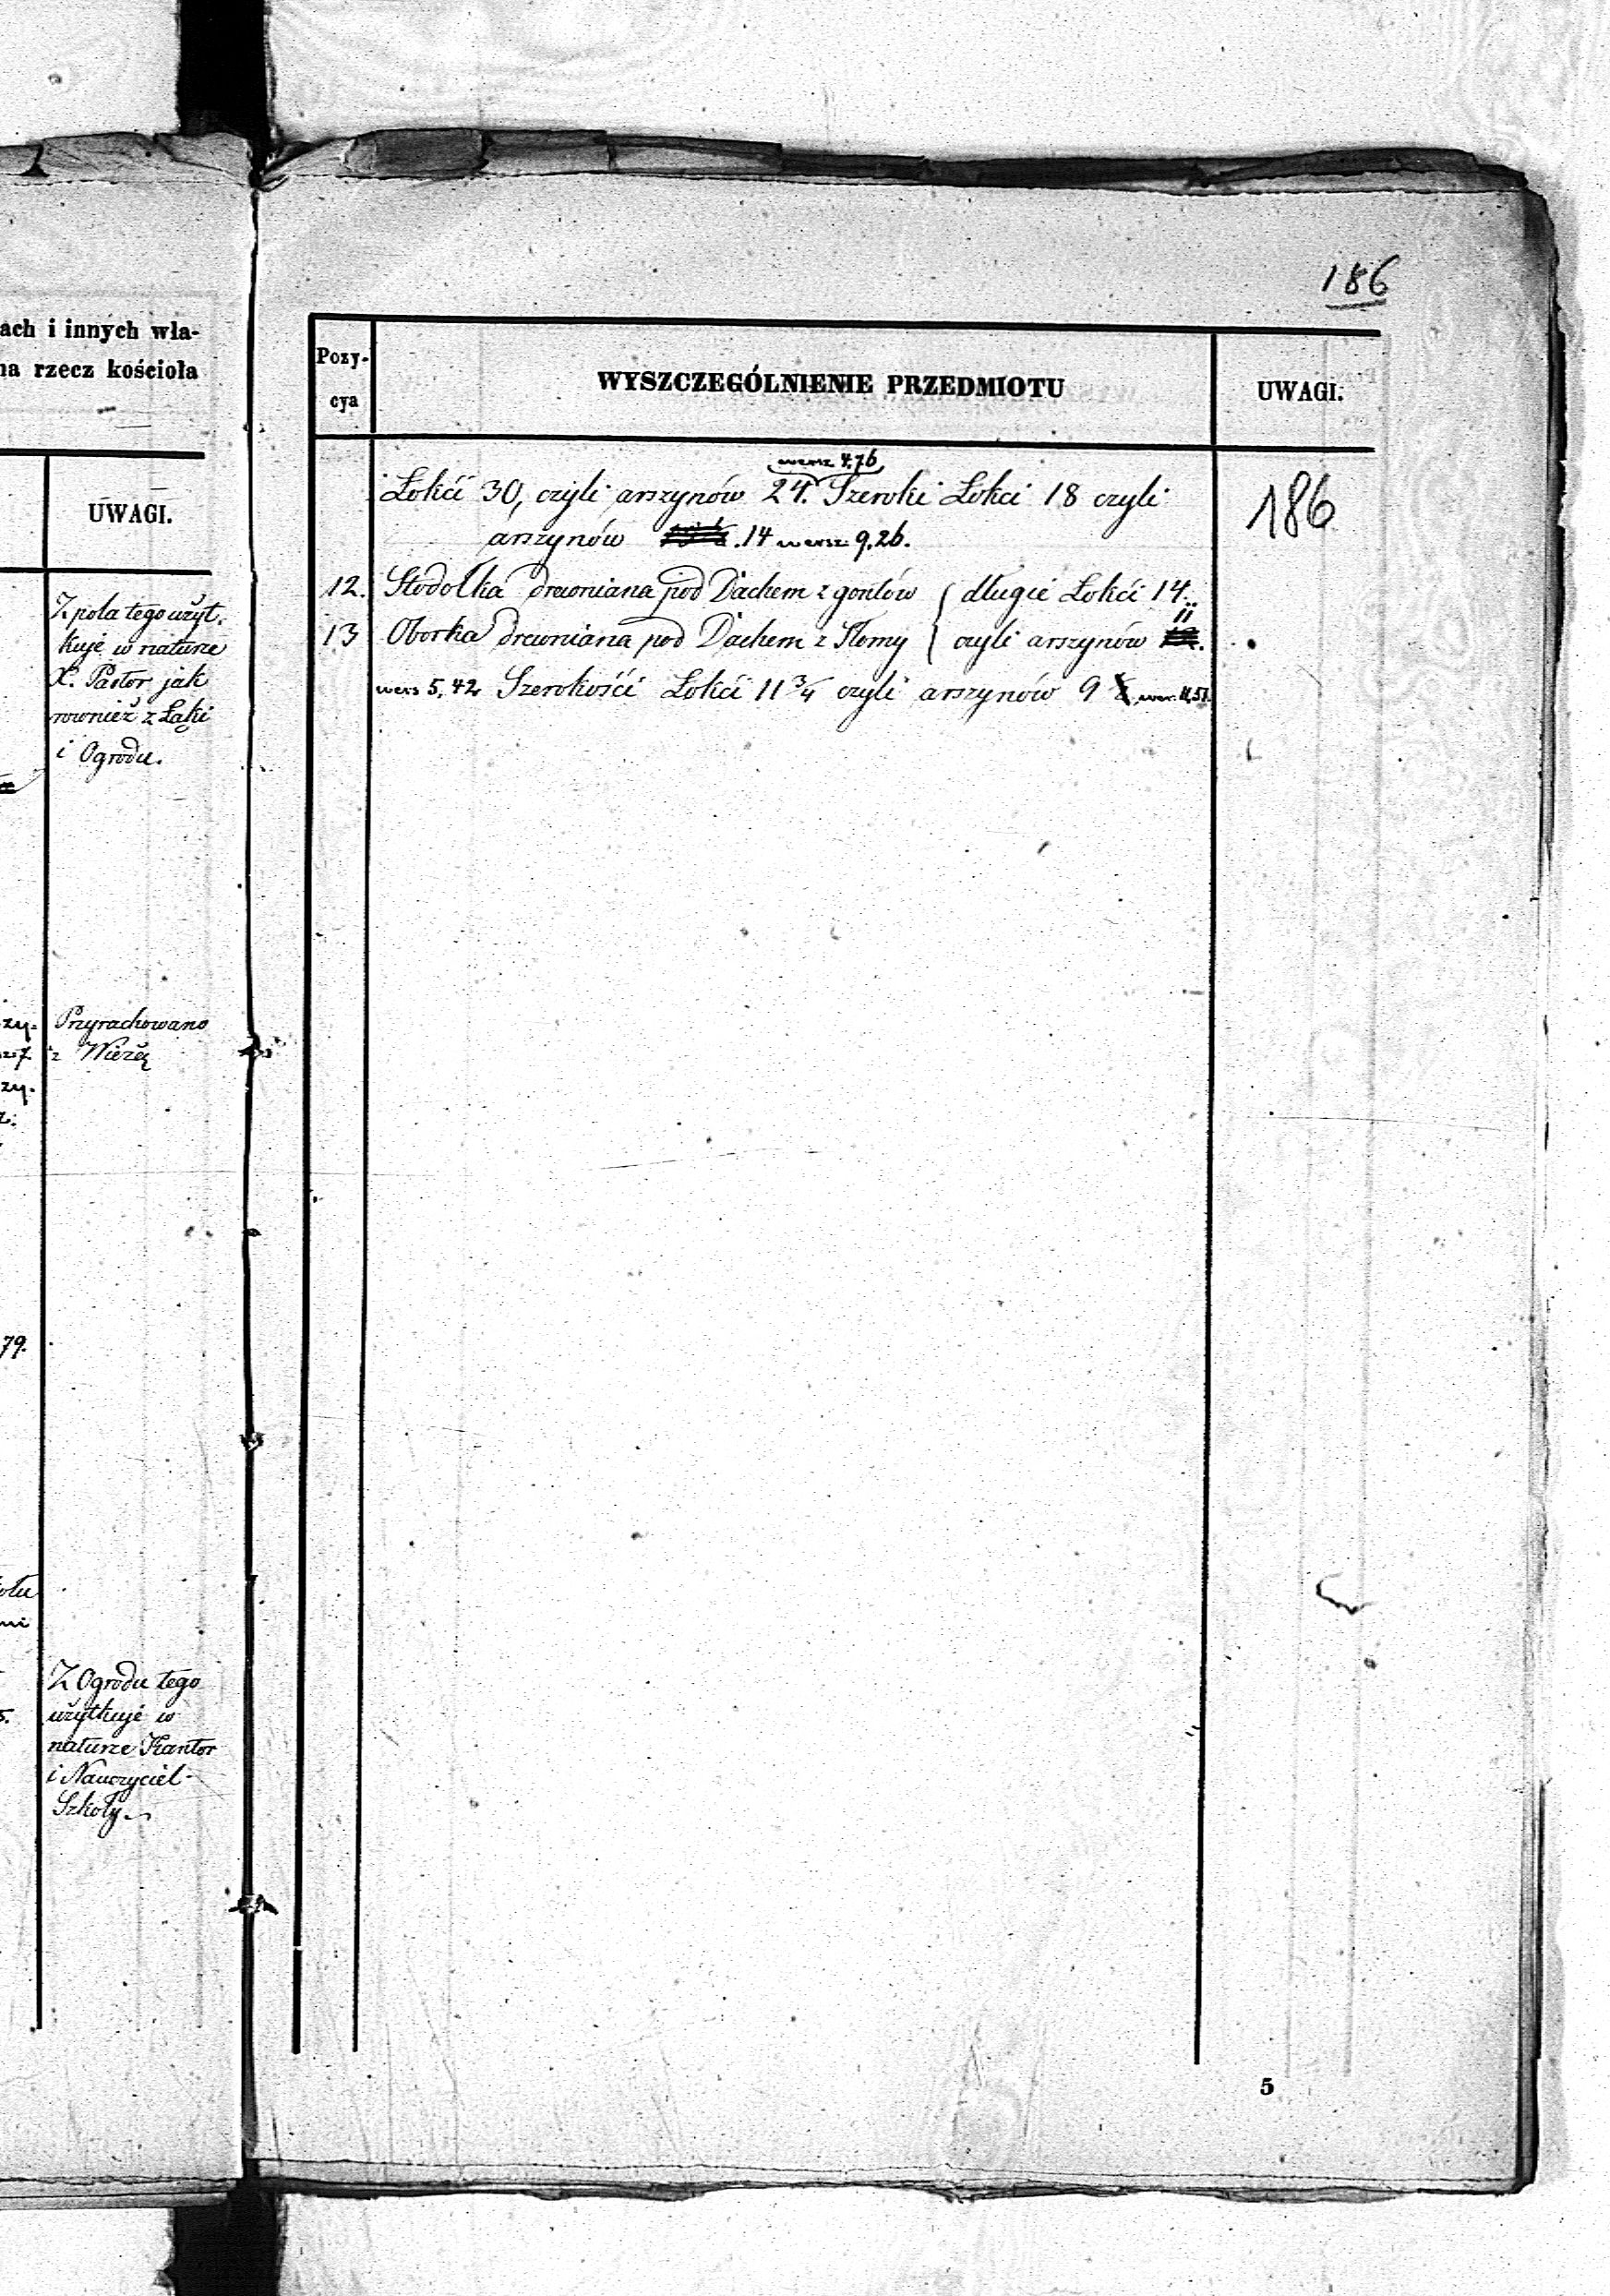 ach i innych wła-
na rzecz kościoła
UWAGI.
Z pola tego użyt.
kuje w naturze
X. Pastor jak
rownież z Łąki
i Ogrodu.
zy-
Przyrachowano
z Wieżą
zy.
79.
ołu
Z Ogrodu tego
użytkuje w
5.
naturze Kantor
i Nauczyciel
Szkoły
186
Pozy-
cya
WYSZCZEGÓLNIENIE PRZEDMIOTU
UWAGI.
wersz 4,76
Łokći 30, czyli arszynów 24. Szeroki Łokci 18 czyli
186
arszynów .14 wersz: 9,26.
12. Stodółka drewniana pod Dachem z gontów ( długie Łokći 14.
11
13 Oborka drewniana pod Dachem z Słomy ( czyli arszynów
wers 5,42 Szerokości Łokći 11 3/4 czyli arszynów 9 wer. 11,57.
5